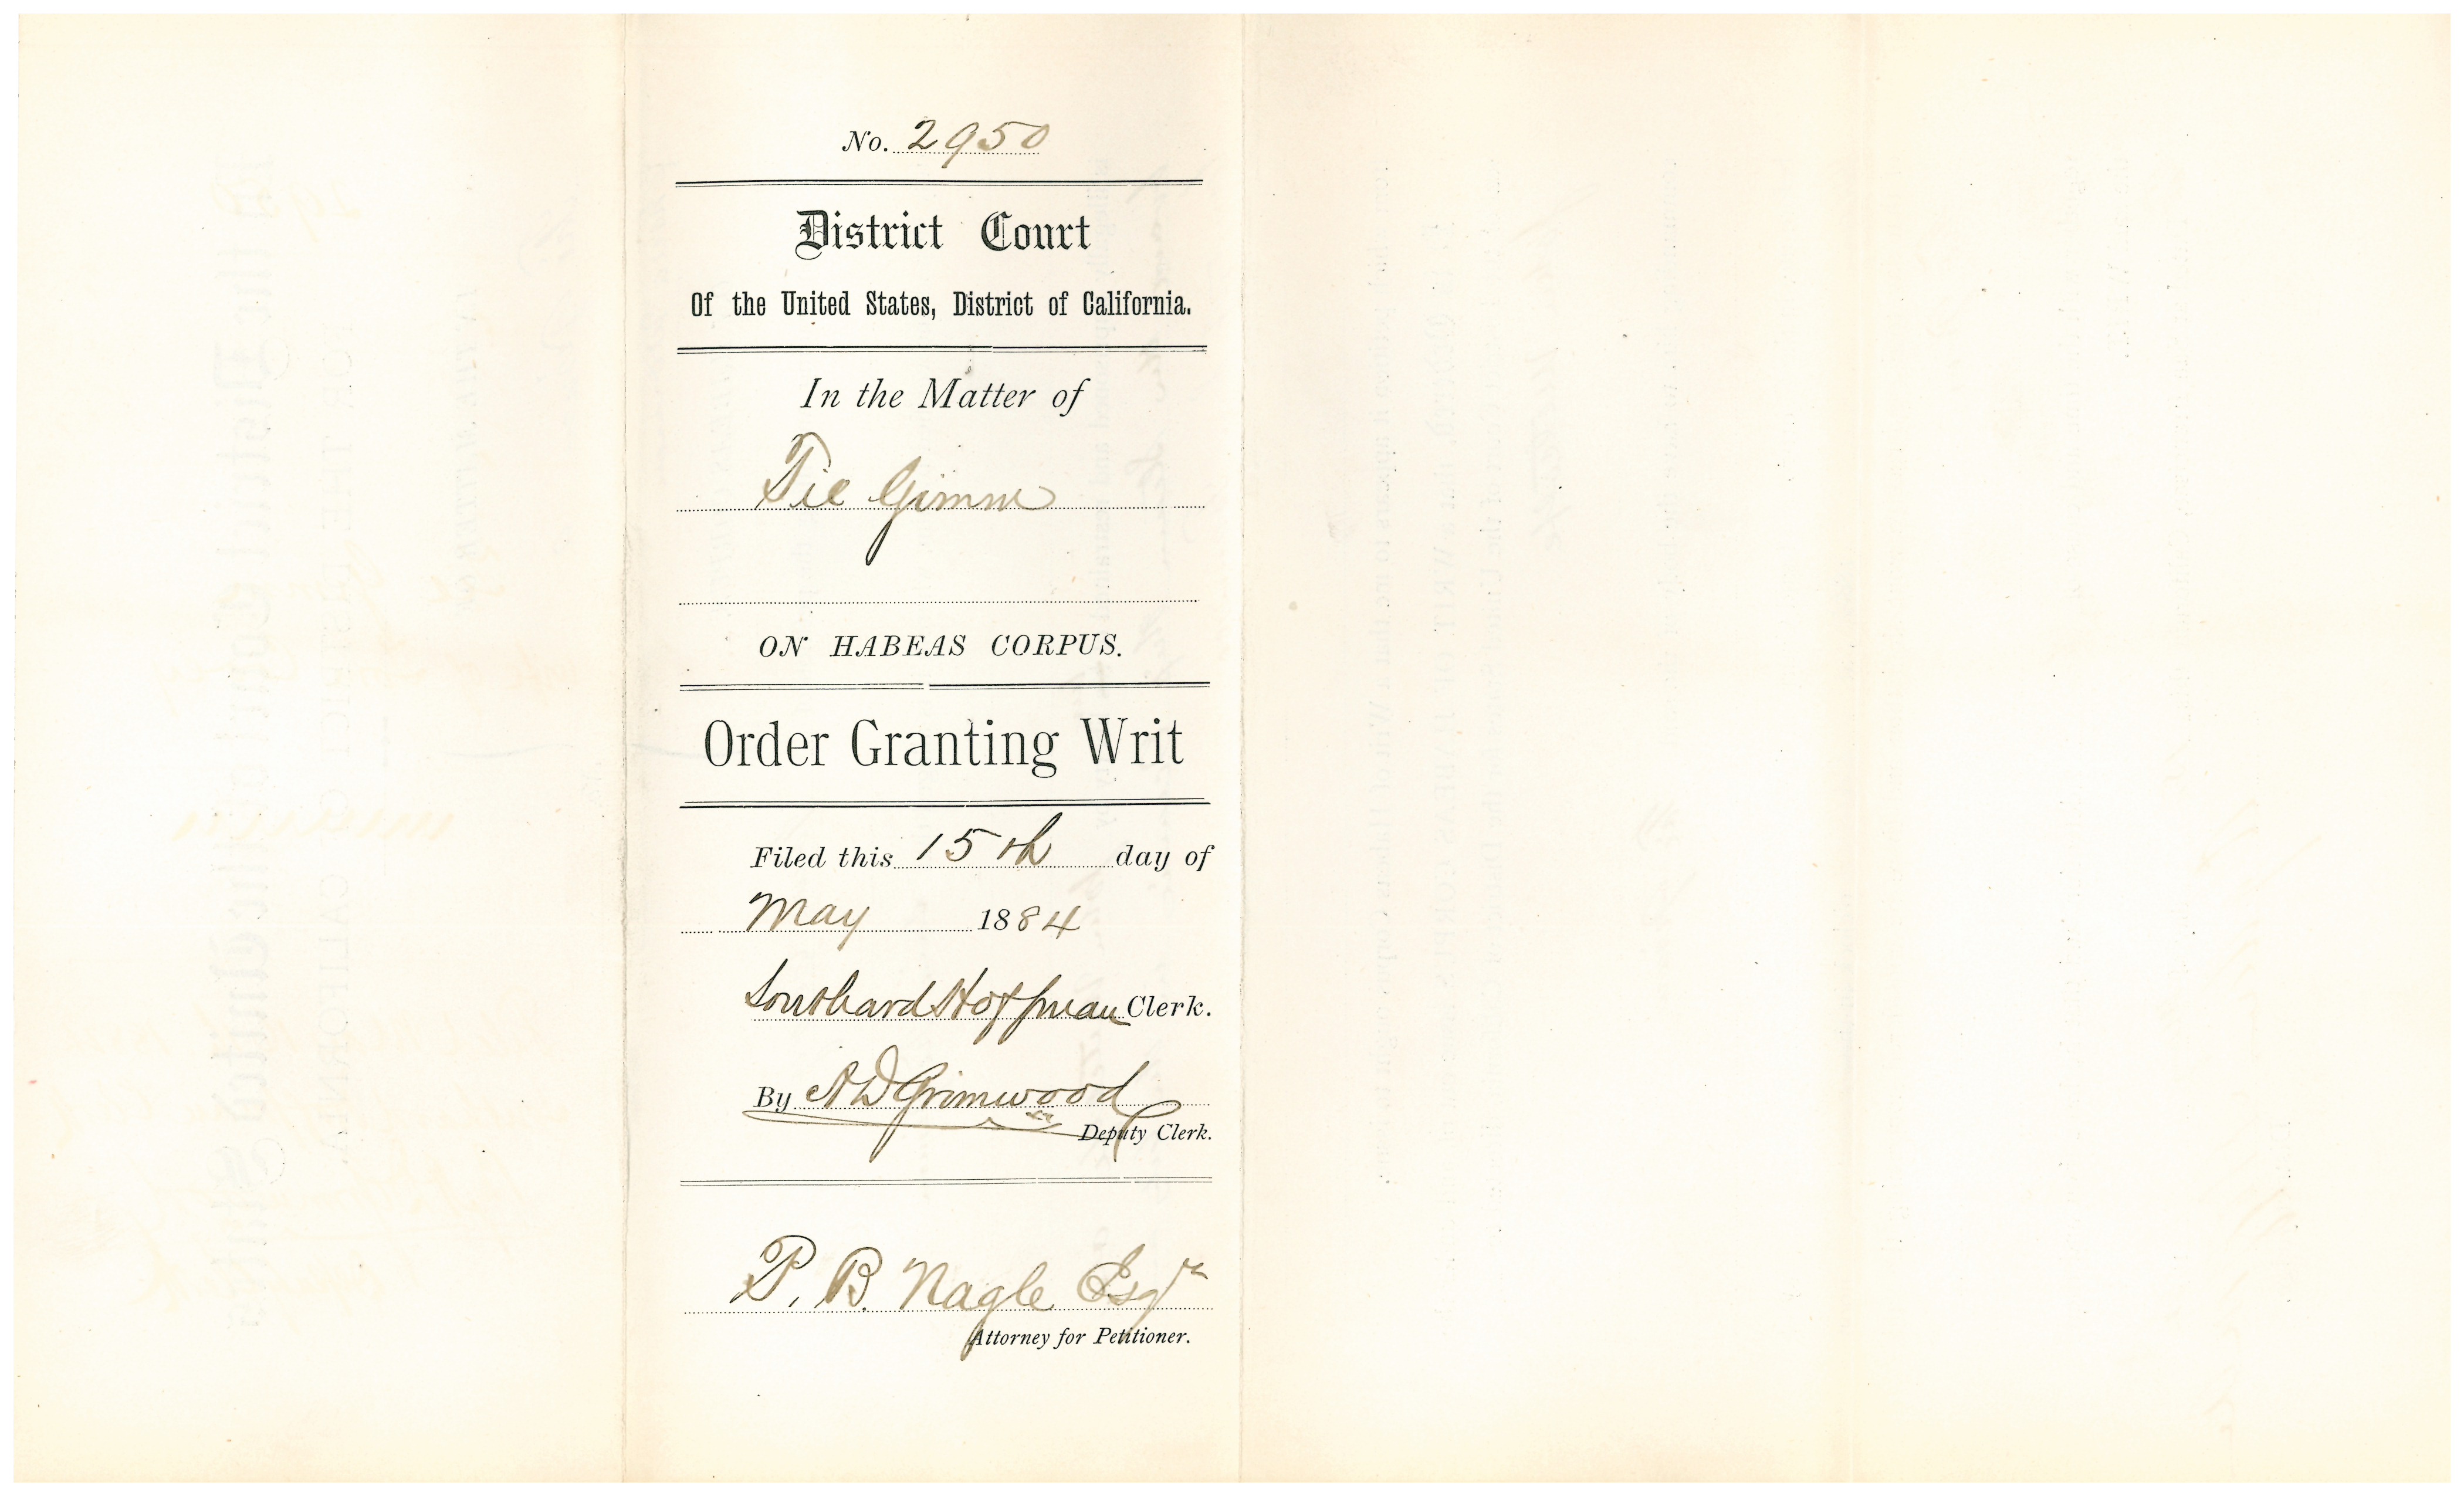 No. 2950
District Court
Of the United States, District of California.
In the Matter of
Tie Gimm
ON HABEAS CORPUS.
Order Granting Writ
Filed this 15th day of
May 1884
Southard Hoffman Clerk.
By A D Grimwood
Deputy Clerk.
P. B. Nagle Esqr
Attorney for Petitioner.